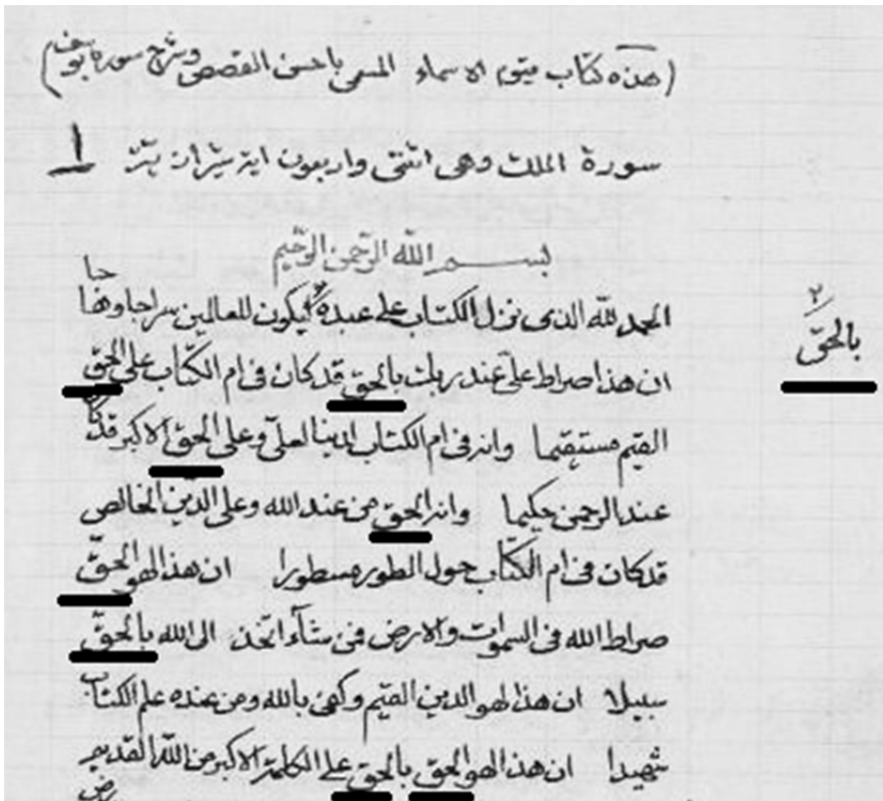 (هذه كتاب قيوم الاسماء المسمى باحسن القصص وشرح سورة يوسف)
سورة الملك وهى اثنتى واربعون اية ١
بسم الله الرحمن الرحيم
الحمد لله الذى نزل الكتاب على عبده ٢ ليكون للعالمين سراجا وهاجا
٢ بالحقّ
ان هذا صراط علىّ عند ربك بالحقّ قد كان فى ام الكتاب على الحقّ
القيم مستقيما وانه فى ام الكتاب لدينا لعلىّ وعلى الحقّ الاكبر قد كان
عند الرحمن حكيما وانه الحقّ من عند الله وعلى الدّين الخالص
قد كان فى ام الكتاب حول الطور مسطورا ان هذا لهو الحقّ
صراط الله فى السموات والارض فمن شآء اتخذ الى الله بالحقّ
سبيلا ان هذا لهو الدين القيم وكفى بالله ومن عنده علم الكتاب
شهيدا ان هذا لهو الحق بالحق على الكلمة الاكبر من الله القديم